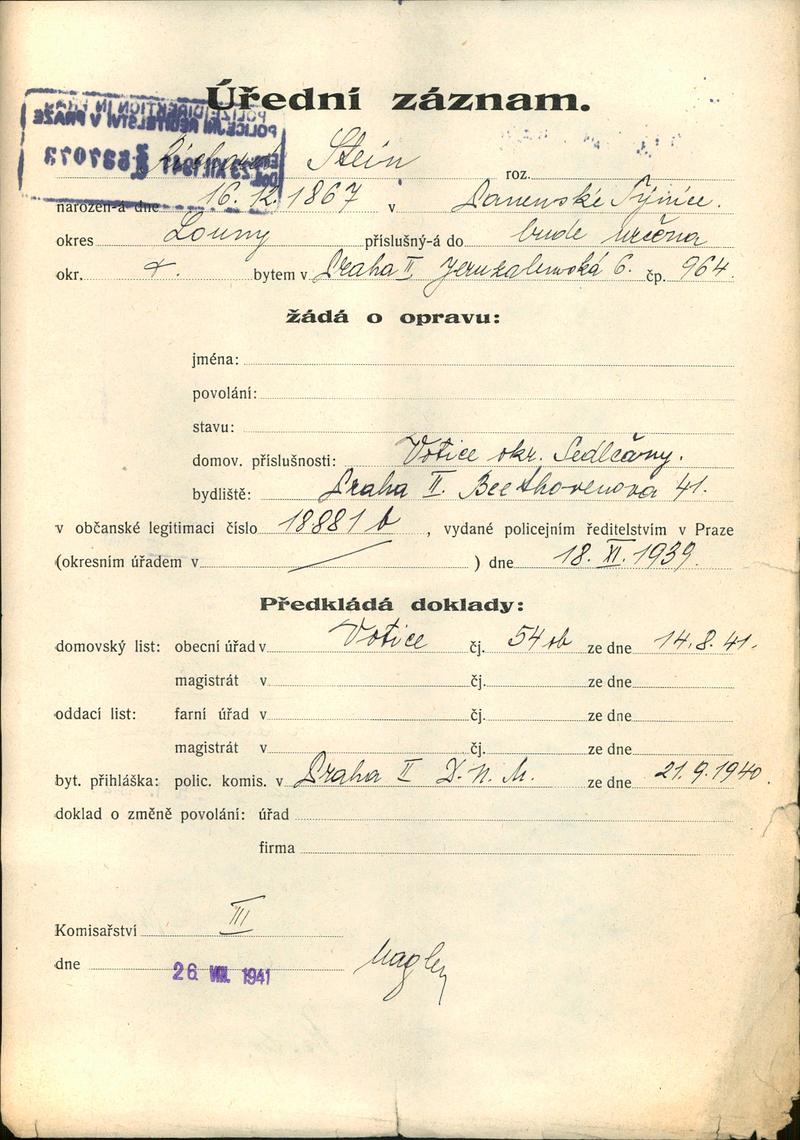 Úřední záznam.
POLICEJNÍ ŘEDITELSTVÍ V PRAZE
Stein roz.
narozen-á dne 16. 12. 1867 v Panenské Týnice.
okres Louny příslušný-á do bude určena
okr. bytem v Praha II Jeruzalemská 6. čp. 964.
žádá o opravu:
jména:
povolání:
stavu:
domov. příslušnosti: Votice okr. Sedlčany.
bydliště: Praha II. Beethovenova 41.
v občanské legitimaci číslo 18881 b, vydané policejním ředitelstvím v Praze
(okresním úřadem v ) dne 18. XI. 1939.
Předkládá doklady:
domovský list: obecní úřad v Votice čj. 54 ze dne 14.8.41.
magistrát v čj. ze dne
oddací list: farní úřad v čj. ze dne
magistrát v čj. ze dne
byt. přihláška: polic. komis. v Praha II D.N.M. ze dne 21.9.1940.
doklad o změně povolání: úřad
firma
Komisařství III
dne 26. VIII. 1941